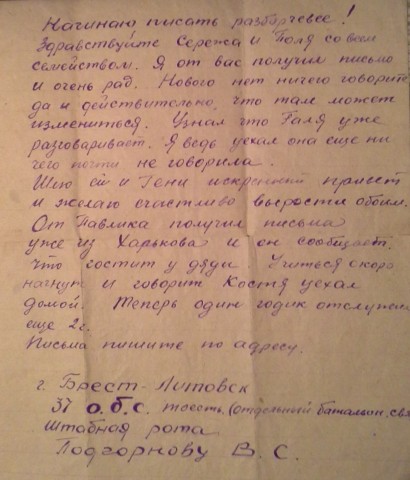 Начинаю писать разборчевее!
Здравствуйте Сережа и Поля со всем
семейством. Я от вас получил письмо
и очень рад. Нового нет ничего говорите
да и действительно, что там может
измениться. Узнал что Галя уже
разговаривает. Я ведь уехал она еще ни
чего почти не говорила.
Шлю ей и Гени искренний привет
и желаю счастливо вырости обоим.
От Павлика получил письма
уже из Харькова и он сообщает.
что гостит у дяди. Учиться скоро
начнут и говорит Костя уехал
домой. Теперь один годик отслужил
еще 2г.
Письма пишите по адресу.
г. Брест-Литовск
37 о.б.с. тоесть (отдельный батальон свя
Штабная рота
Подгорнову В. С.